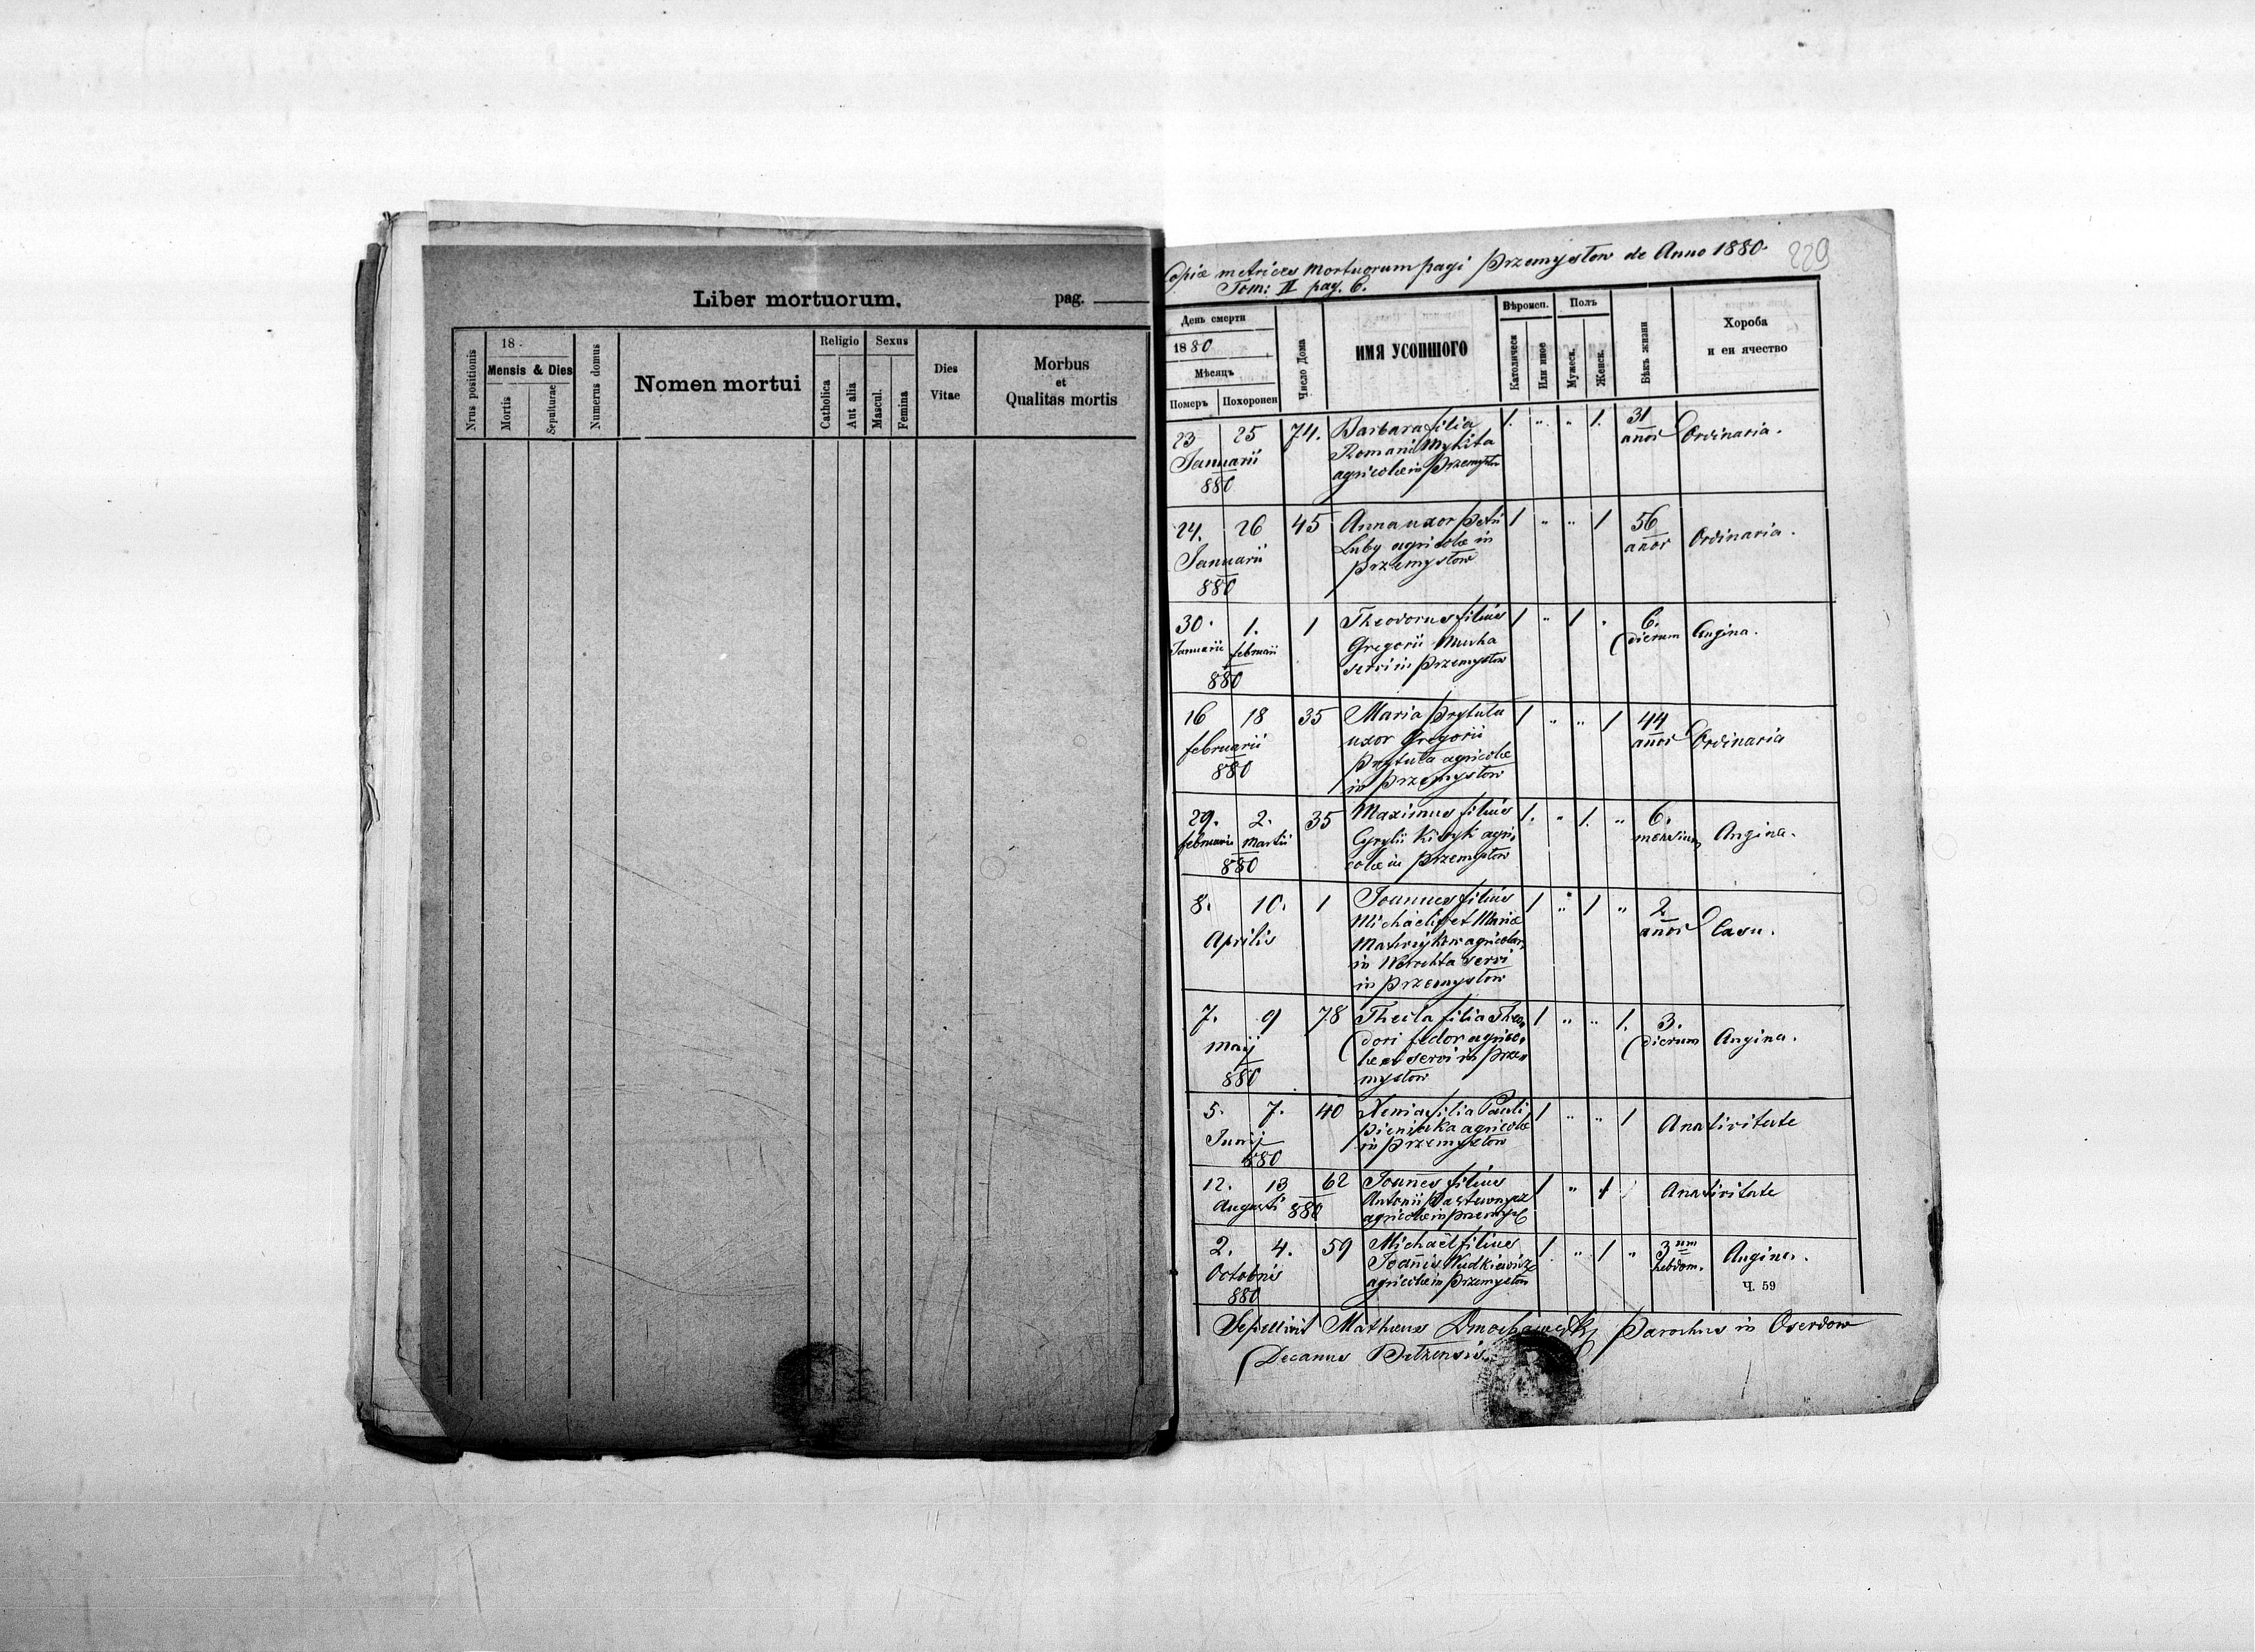 Liber mortuorum.
pag.
Nrus positionis
18
Mensis & Dies
Mortis
Sepulturae
Numerus domus
Nomen mortui
Religio
Catholica
Aut alia
Sexus
Mascul.
Femina
Dies
Vitae
Morbus
et
Qualitas mortis
Copia metrices Mortuorum pagi Przemysłow de Anno 1880.
229
Tom: II pag. 6.
День смерти
1880
Мѣсяцъ
Померъ
Похоронен
Число Дома
ИМЯ УСОПШОГО
Вѣроисп.
Католическ
Или иное
Полъ
Мужеск.
Женск.
Вѣкъ жизни
Хороба
и еи ячество
23 25 74. Barbara filia 1. " " 1. 31
Januarii Romani Mykita anor Ordinaria.
880 agricolæ in Przemysłow
24. 26 45 Anna uxor Petri 1 " " 1 56
Januarii Luby agricolæ in anor Ordinaria.
880 Przemysłow
30. 1. 1 Theodorus filius 1 " 1 " 6.
Januarii februarii Gregorii dierum Angina.
880 servi in Przemysłow
16 18 35 Maria Prytula 1 " " 1 44
februarii uxor Gregorii anor Ordinaria
880 Prytula agricolæ
in Przemysłow
29. 2. 35 Maximus filius 1. " 1. " 6.
februarii Martii Cyrylii agri- mensium Angina.
880 colæ in Przemysłow
8. 10. 1 Joannes filius 1 " 1 " 2
Aprilis Michaelis et Mariæ anor Casu.
agricolar.
in servi
in Przemysłow
7. 9 78 Thecla filia Theo- 1 " " 1. 3.
Maij dori Fedor agrico- dierum Angina.
880 læ et servi in Prze-
mysłow
5. 7. 40 Xenia filia Pauli 1 " " 1 A nativitate
Junij agricolæ
880 in Przemysłow
12. 13 62 Joannes filius 1 " 1 A nativitate
Augusti 880 Antonii
agricolæ in Przemysł
2. 4. 59 Michaël filius 1 " 1 " 3um Angina.
Octobris Joannis hebdom.
880 agricolæ in Przemysłow
Ч. 59
Sepelivit Mathæus Parochus in Oserdow
Decanus Bełzensis.